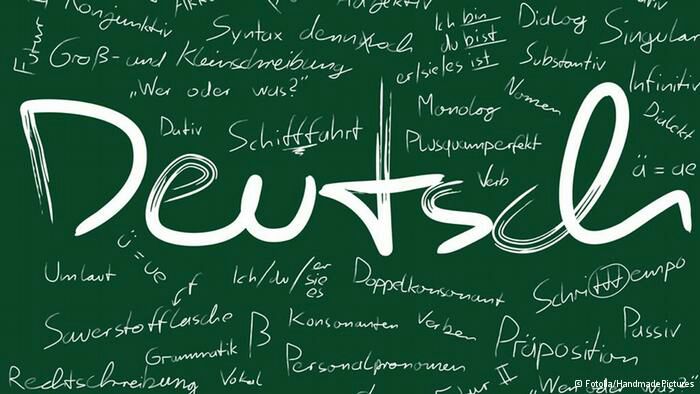 Konjunktiv
Futur I
Syntax dennoch
Ich bin
du bist
er/sie/es ist
Dialog
Singular
Groß- und Kleinschreibung
Substantiv
Infinitiv
„Wer oder was?"
Monolog
Nomen
Dialekt
Dativ
Schifffahrt
Plusquamperfekt
Verb
ä = ae
Deutsch
ü = ue
Umlaut
Ich/du/er
sie
es
Doppelkonsonant
Schritttempo
f
Sauerstofflasche
ß
Konsonanten
Verben
Passiv
Grammatik
Personalpronomen
Präposition
Rechtschreibung
Vokal
II
„Wer oder was?"
© Fotolia/HandmadePictures